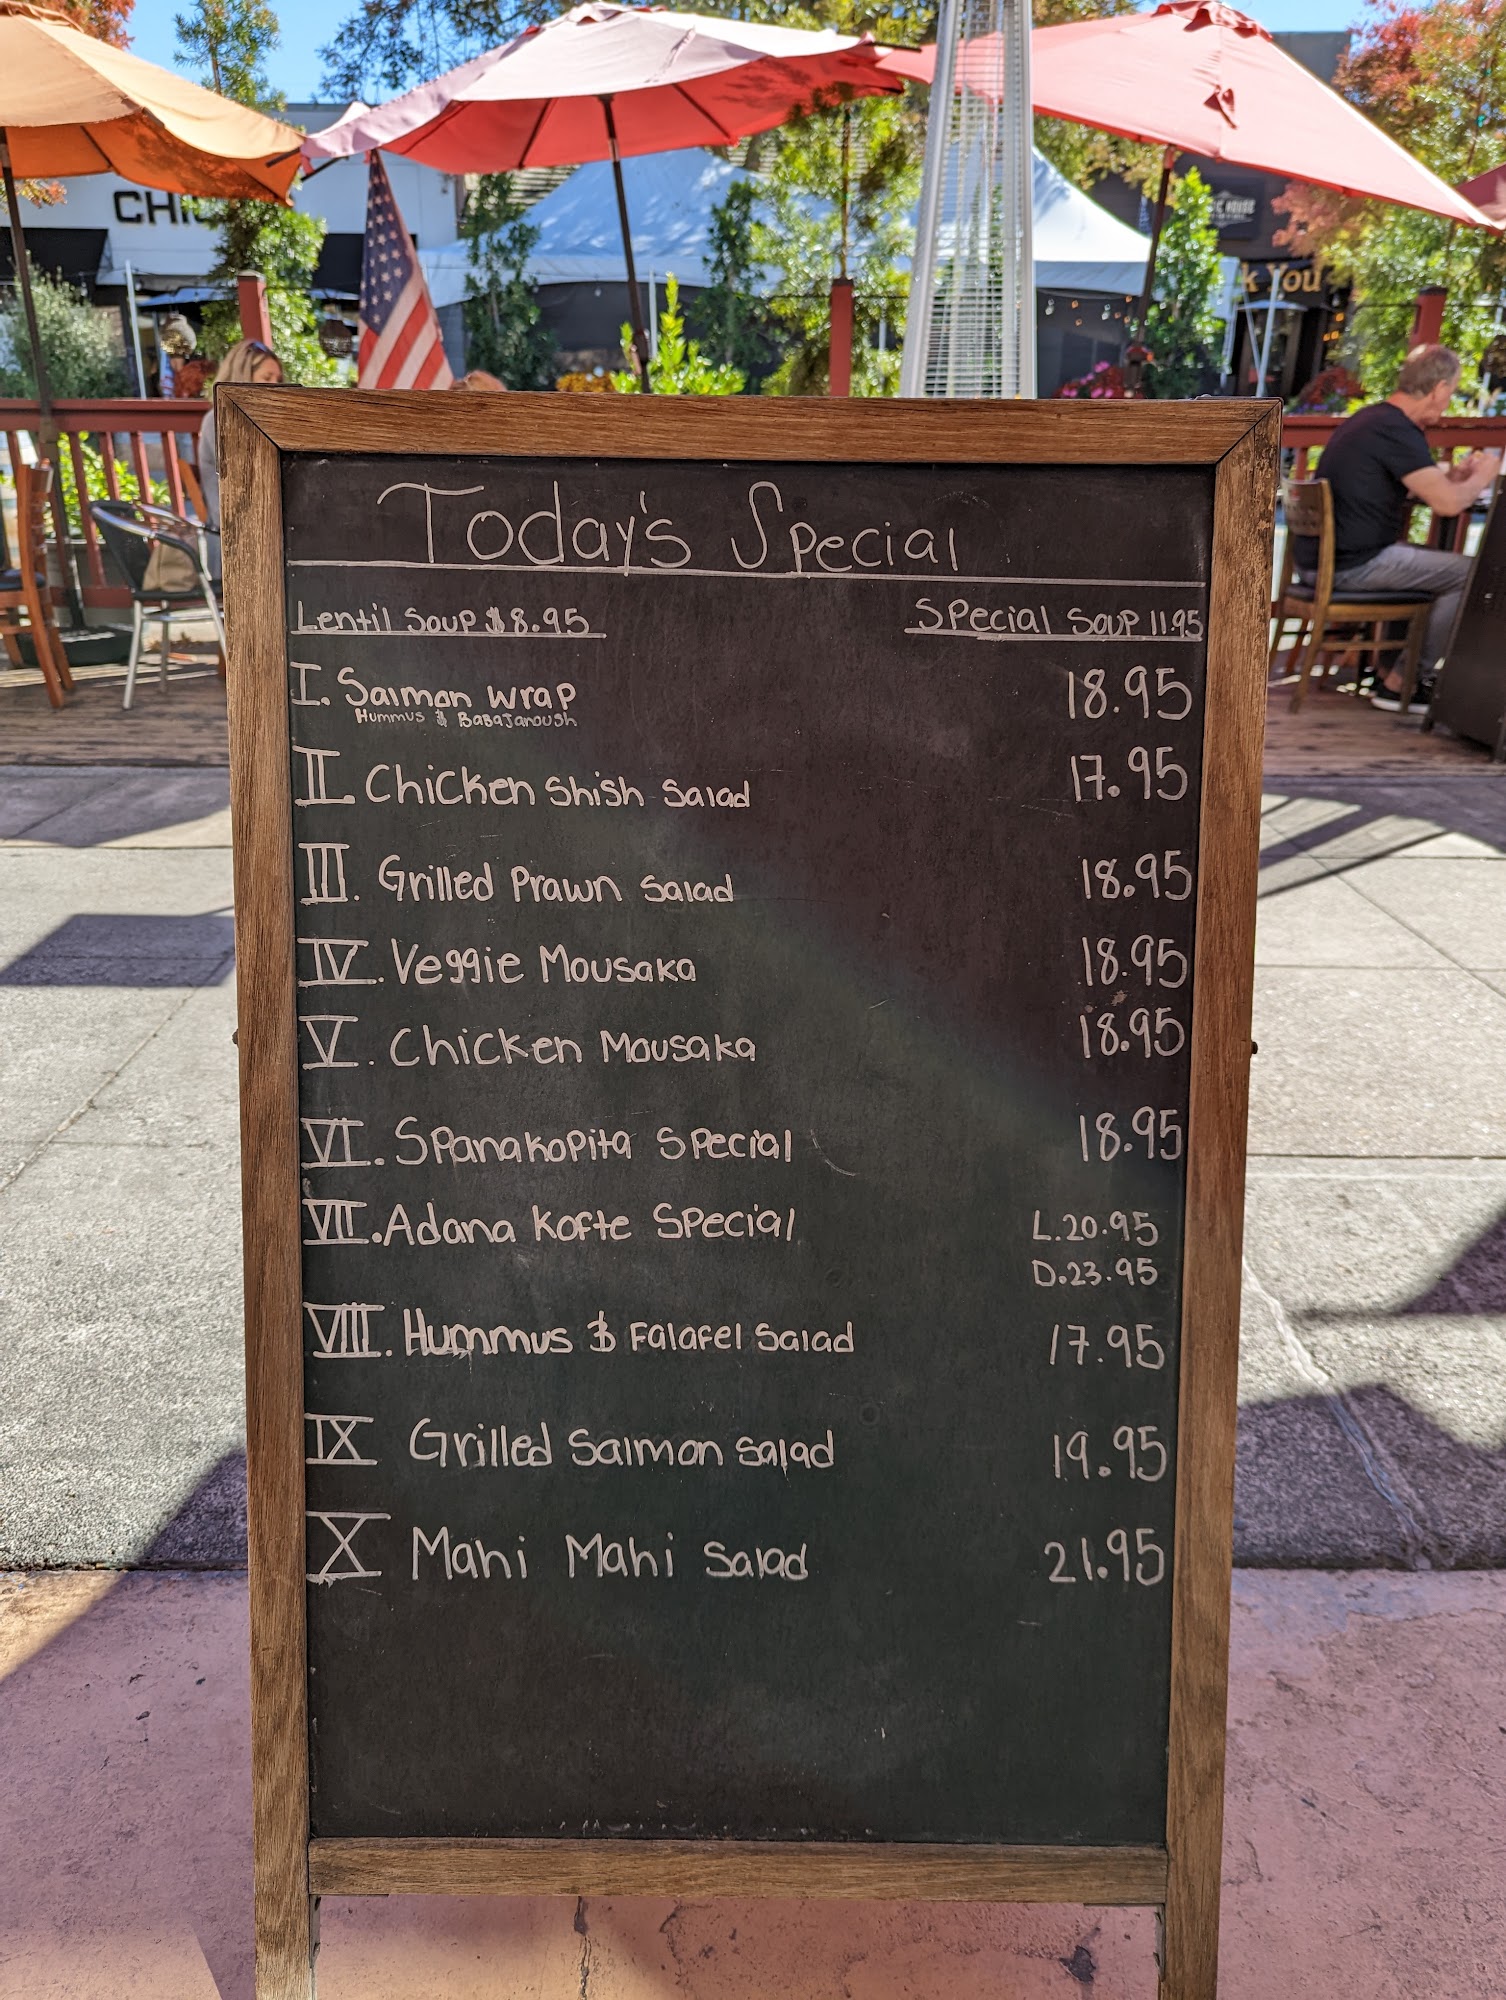 CHI
HOUSE
k You
Today's Special
Lentil Soup $8.95 Special Soup 11.95
I. Salmon Wrap 18.95
Hummus & Babajanoush
II Chicken Shish Salad 17.95
III. Grilled Prawn Salad 18.95
IV. Veggie Mousaka 18.95
V. Chicken Mousaka 18.95
VI. Spanakopita Special 18.95
VII. Adana Kofte Special L.20.95
D.23.95
VIII. Hummus & Falafel Salad 17.95
IX Grilled Salmon Salad 19.95
X Mahi Mahi Salad 21.95